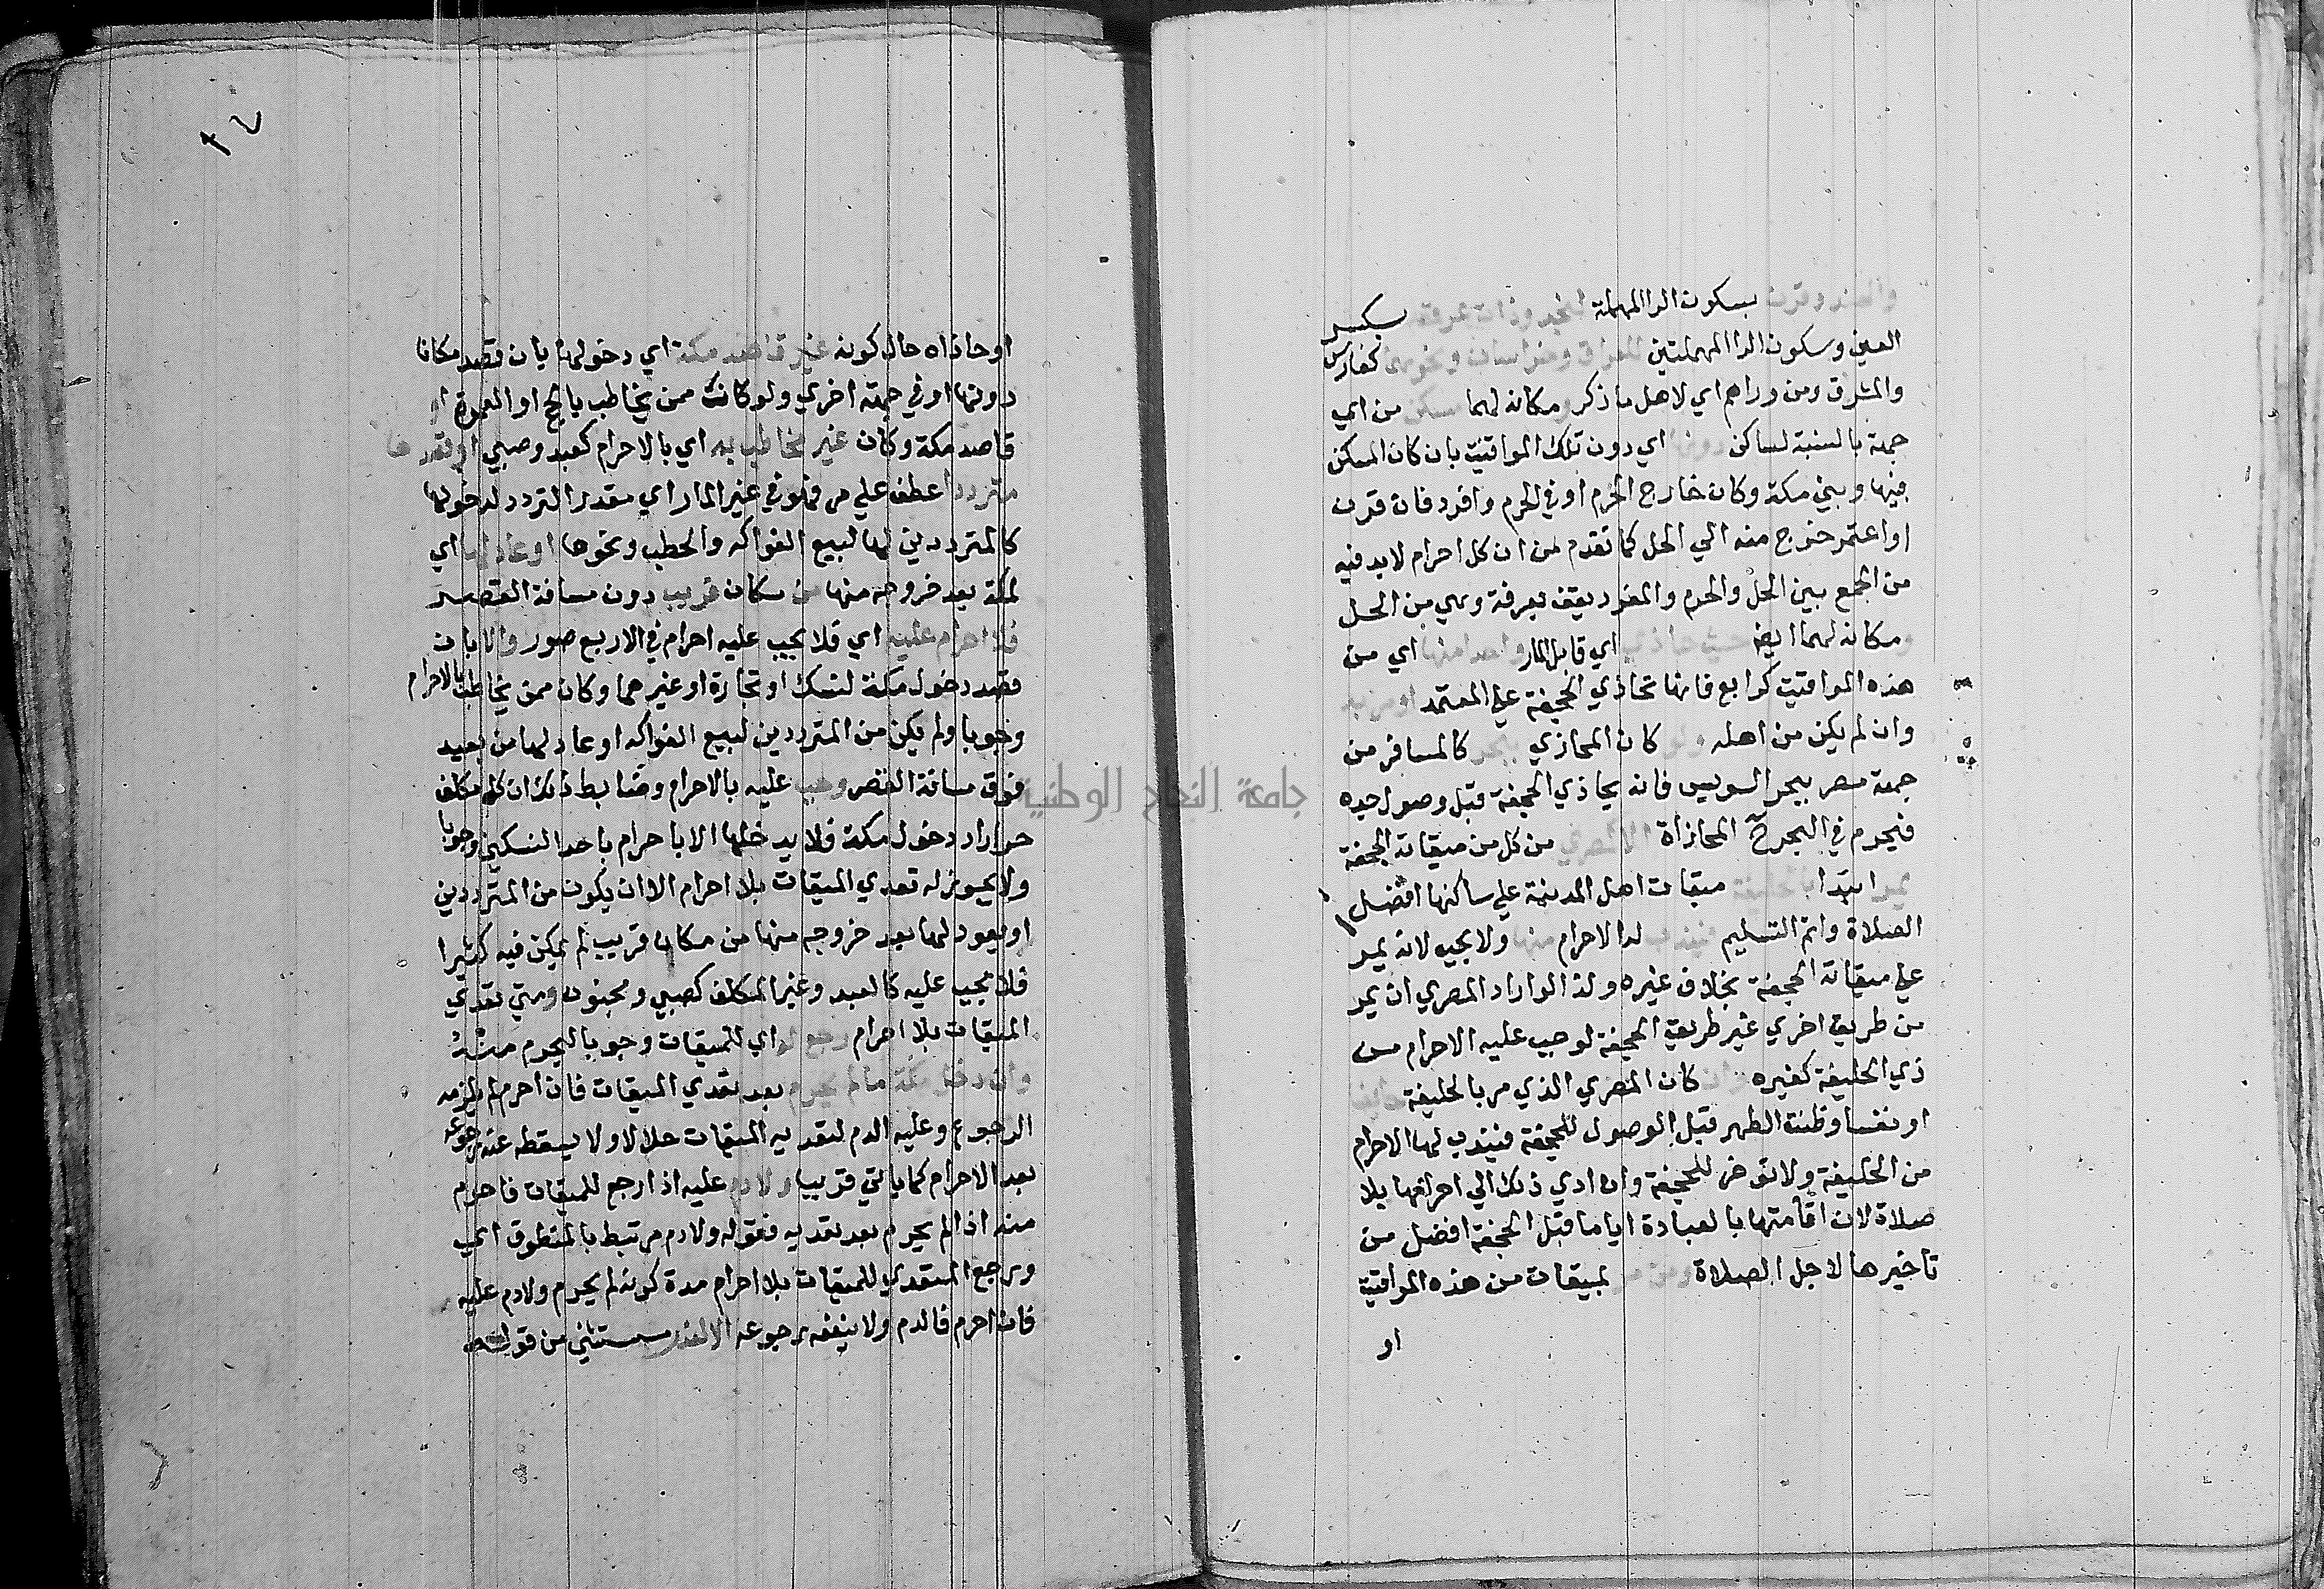 والهند وقرن بسكون الرا المهملة لنجد وذات عرق بكسر
العين وسكون الرا المهملتين للعراق وخراسان ونحوهما كفارس
والمشرق ومن وراهم اي لاهل ما ذكر ومكانه لهما مسكن من اي
جهة بالنسبة لساكن دونها اي دون تلك المواقيت بان كان المسكن
فيها وبين مكة وكان خارج الحرم او في الحرم وافرد فان قرن
او اعتمر خرج منه الي الحل كما تقدم من ان كل احرام لابد فيه
من الجمع بين الحل والحرم والمفرد يقف بعرفة وهي من الحل
ومكانه لهما ايضا حيث حاذي اي قابل المار واحدا منها اي من
هذه المواقيت كرابع فانها تحاذي الجحفة علي المعتمد او مر به
وان لم يكن من اهله ولو كان المحاذي ببحر كالمسافر من
جهة مصر ببحر السويس فانه يحاذي الجحفة قبل وصول جده
فيحرم في البحر المحاذاة الا كمصري من كل من ميقاته الجحفة
يمر ابتدا بالحليفة ميقات اهل المدينة علي ساكنها افضل
الصلاة واتم التسليم فيندب له الاحرام منها ولا يجب لانه يمر
علي ميقاته الجحفة بخلاف غيره ولذا لو اراد المصري ان يمر
من طريق اخري غير طريق الجحفة لوجب عليه الاحرام من
ذي الحليفة كغيره وان كان المصري الذي مر بالحليفة حايضا
او نفسا وظنت الطهر قبل الوصول للجحفة فيندب لها الاحرام
من الحليفة ولا توخر للجحفة وان ادي ذلك الي احرامها بلا
صلاة لان اقامتها بالعبادة اياما قبل الجحفة افضل من
تاخيرها لاجل الصلاة ومن مر بميقات من هذه المواقيت
او
٢٧
او حاذاه حال كونه غير قاصد مكة اي دخولها بان قصد مكانا
دونها او في جهة اخري ولو كانت ممن يخاطب بالحج او العمرة او
قاصد مكة وكان غير مخاطب به اي بالاحرام كعبد وصبي او قصدها
مترددا عطف علي مر فهو في غير المار اي مقدر التردد لدخولها
كالمترددين لها لبيع الفواكه والحطب ونحوها او عاد لها اي
لمكة بعد خروجه منها من مكان قريب دون مسافة القصر
فلا احرام عليه اي فلا يجب عليه احرام في الاربع صور والا بان
قصد دخول مكة لنسك او تجارة او غيرهما وكان ممن يخاطب بالاحرام
وجوبا ولم يكن من المترددين لبيع الفواكه او عاد لها من بعيد
فوق مسافة القصر وجب عليه بالاحرام وضابط ذلك ان كل مكلف
حر اراد دخول مكة فلا يدخلها الا باحرام باحد النسكين وجوبا
ولا يجوز له تعدي الميقات بلا احرام الا ان يكون من المترددين
او يعود لها بعد خروجه منها من مكان قريب لم يمكن فيه كثيرا
فلا يجب عليه كالعبد وغير المكلف كصبي ومجنون ومتي تعدي
الميقات بلا احرام رجع له اي للميقات وجوبا ليحرم منه
وان دخل مكة ما لم يحرم بعد تعدي الميقات فان احرم لم يلزمه
الرجوع وعليه الدم لتعديه الميقات حلالا ولا يسقطه عنه رجوعه
بعد الاحرام كما ياتي قريبا ولا دم عليه اذا رجع للميقات فاحرم
منه اذا لم يحرم بعد تعديه فقوله ولا دم مرتبط بالمنطوق اي
ورجع المتعدي للميقات بلا احرام مدة كونه لم يحرم ولا دم عليه
فان احرم فالدم ولا ينفعه رجوعه الا لعذر مستثني من قوله
جامعة النجاح الوطنية